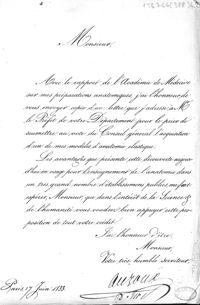 Monsieur,
Avec le rapport de l'Académie de Médecine
sur mes préparations anatomiques, j'ai l'honneur de
vous envoyer copie d'une lettre que j'adresse à Mr
le Préfet de votre Département pour le prier de
soumettre au vote du Conseil général l'acquisition
d'un de mes modèles d'anatomie élastique.
Les avantages que présente cette découverte aujour-
d'hui en usage pour l'enseignement de l'anatomie dans
un très grand nombre d'établissements publics, me font
espérer, Monsieur, que dans l'intérêt de la Science & 
de l'humanité vous voudrez bien appuyer cette pro-
position de tout votre crédit.
J'ai l'honneur d'être,
Monsieur,
Votre très humble serviteur,
Auzoux
Paris 17 juin 1833